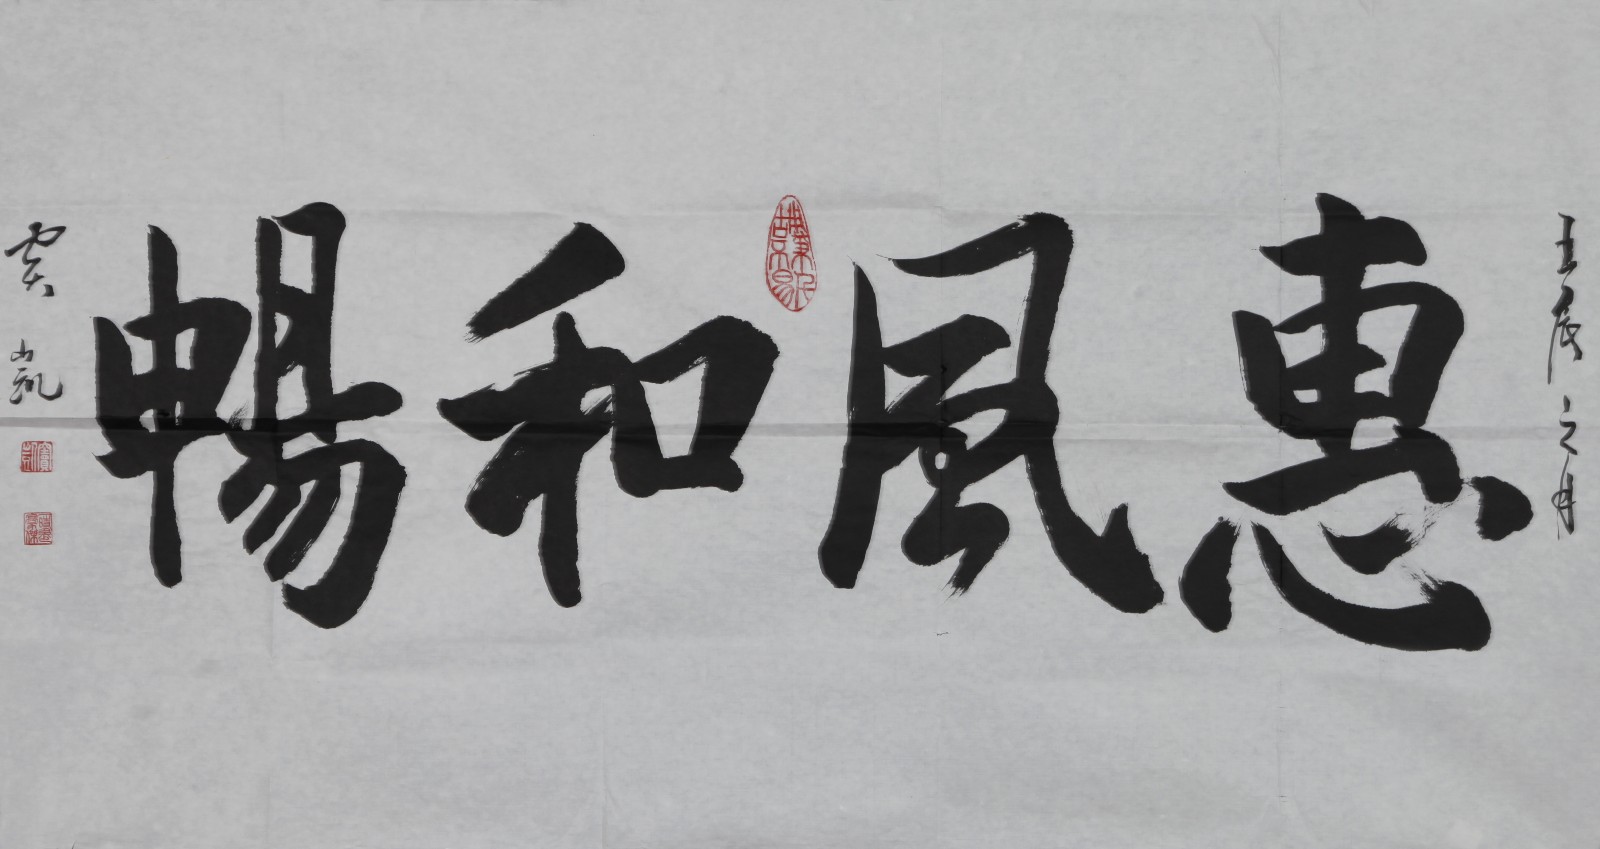 壬辰之月
惠風和暢
凯